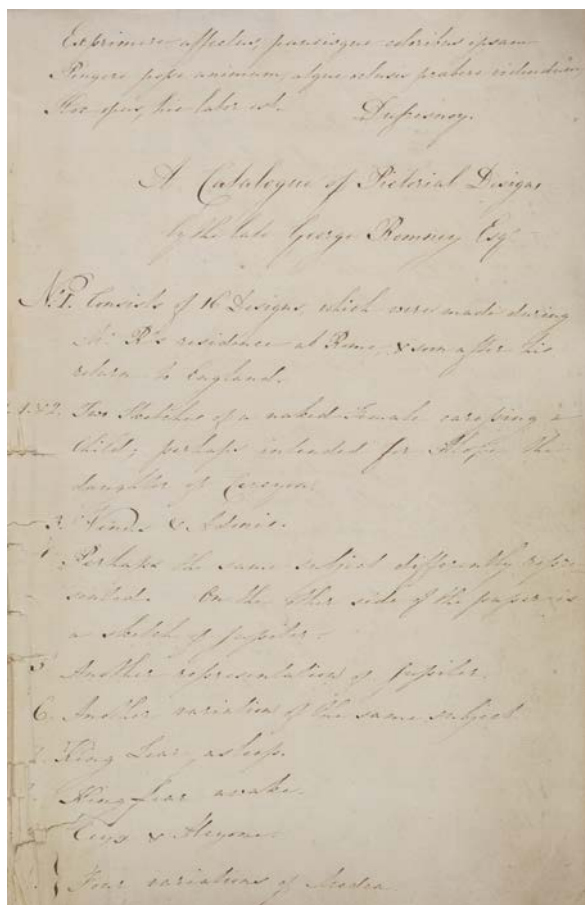 Exprimere affectus, paucisque coloribus ipsam
Pingere posse animum, atque oculis praebere videndum,
Hoc opus, hic labor est. Dufresnoy.
A Catalogue of Pictorial Designs
by the late George Romney Esq
No. I. Consists of 16 Designs, which were made during
Mr. R's residence at Rome, & soon after his
return to England.
1.&2. Two Sketches of a naked Female caressing a
Child; perhaps intended for Alope the
daughter of Cercyon.
3. Venus & Adonis.
Perhaps the same subject differently repre-
sented. On the other side of the paper is
a sketch of Jupiter.
5 Another representation of Jupiter.
6. Another variation of the same subject.
King Lear, asleep.
King Lear awake.
Ceyx & Alcyone.
Four variations of Medea